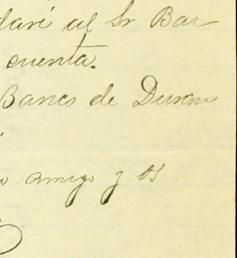 daré al Sr Bar
cuenta.
Banco de Duran
o amigo y SS